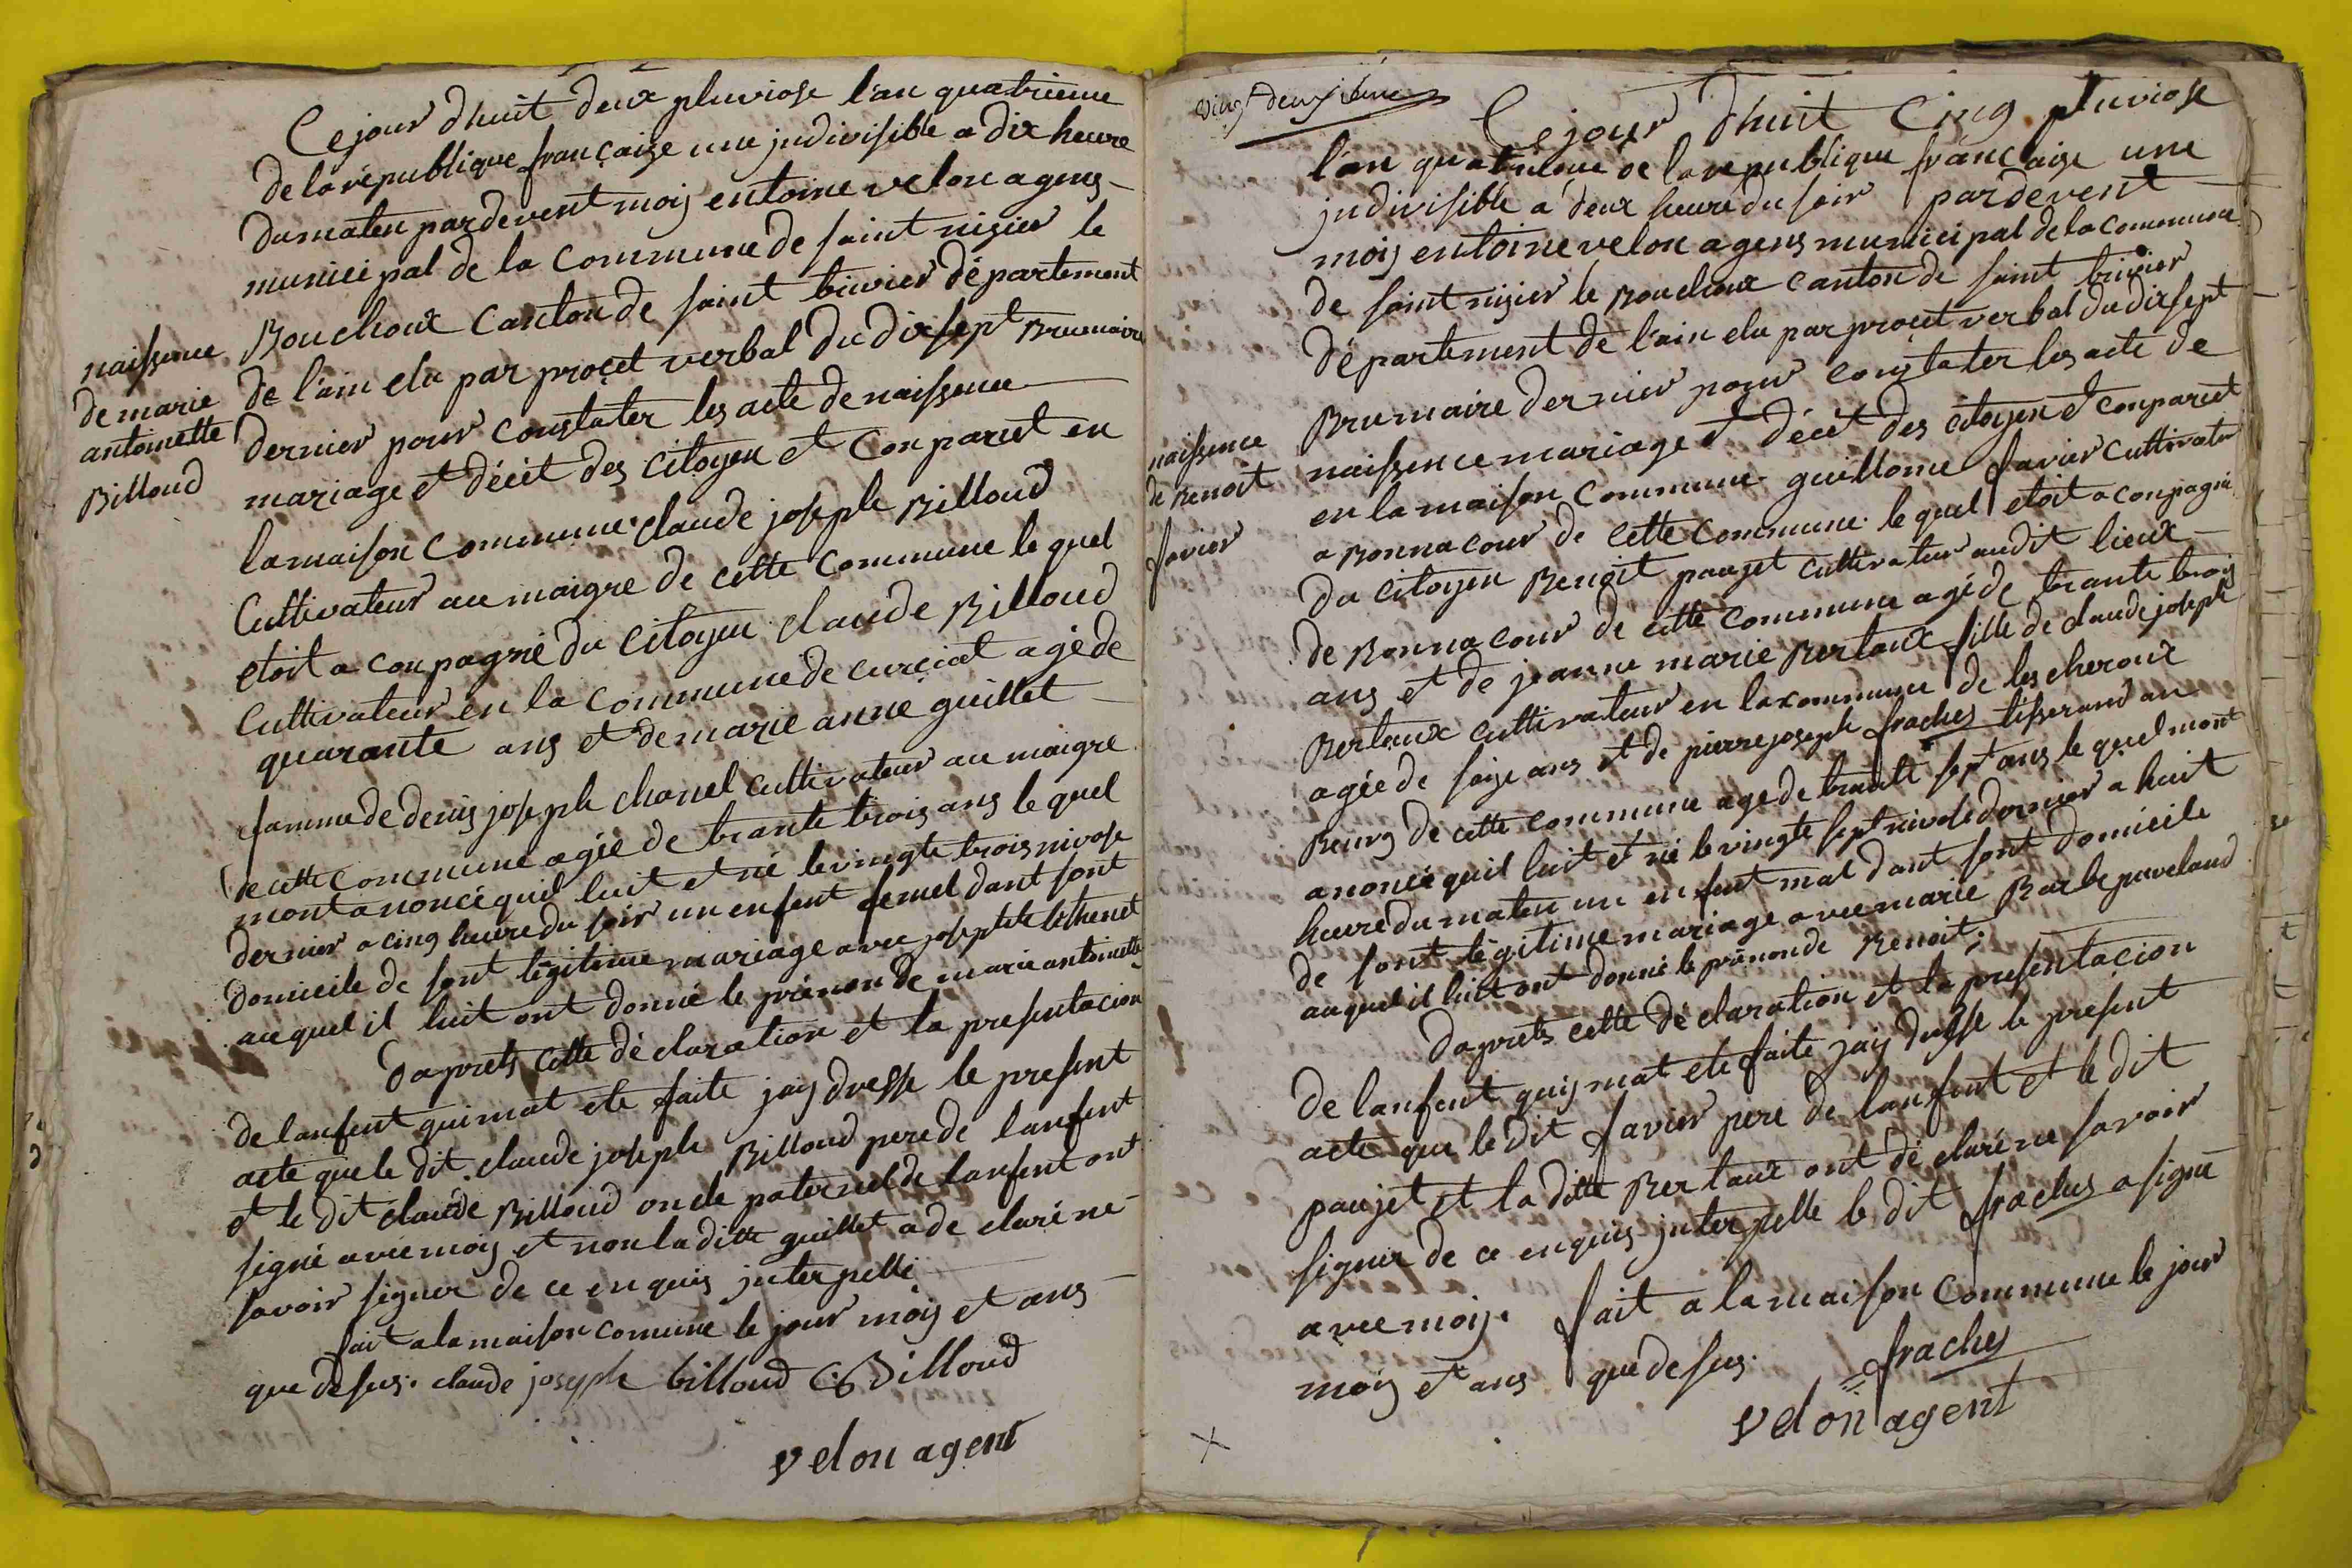 Ce jour d'huit deux pluviose l'an quatrieme
de la république française une jndivisible a dix heure
du maten par devent mois entoine velon agens
municipal de la commune de saint nisier le
Bouchoux canton de saint trivier département
de l'ain elu par proçet verbal du dix sept Brumaire
dernier pour constater les acte de naissence
mariage et décet des citoyen et conparut en
la maison commune claude joseph Billoud
Cultivateur au maigre de cette commune le quel
etoit a conpagné du citoyen claude Billoud
cultivateur en la commune de curciat agé de
quarante ans et de marie anne guillet
famme de denis joseph chanel cultivateur au maigre
de cette commune agée de trante trois ans le quel
mont anoncé quil luit et né le vingte trois nivose
dernier a cinq heure du soir un enfent femel dant sont
domicile de sont légitime mariage avec josephte bethenet
auquel il luit ont donné le prénon de marie antoinette
Daprets cette déclaration et la presentacion
de lanfent qui mat ete faite jaij dresse le present
acte que le dit claude joseph Billoud pere de lanfent
et le dit claude Billoud oncle paternel de lanfent ont
signé avec mois et non la ditte guillet a de claré ne
savoir signer de ce enquis jnterpellé
fait a la maison comune le jour mois et ans
que desus. claude joseph billoud C Billoud
velon agent
naissence
de marie
antoinette
Billoud
vingt deuxième
Ce jour d'huit Cinq pluviose
l'an quatrieme de la republique françaige une
jndivisible a deux heure du soir par devent
mois entoine velon agens municipal de la commune
de saint nisier le Bouchoux canton de saint trivier
département de l'ain elu par proçet verbal du dix sept
Brumaire dernier pour constater les acte de
naissence mariage et décet des citoyen et conparut
en la maison commune guillome favier cultivateur
a Bonnacour de cette commune le quel etoit a conpagné
du citoyen Benoit paujet cultivateur audit lieux
de Bonnacour de cette commune agé de trante trois
ans et de jeanne marie Bertoux fille de claude joseph
Bertoux cultivateur en la commune de lescheroux
agée de saize ans et de pierre joseph fraches tisserand au
Bourg de cette commune agé de trante sept ans le quel mont
anoncé quil luit et né le vingte sept nivose dernier a huit
heure du maten un enfent mal dant sont domicile
de sont légitime mariage avec marie Barbe paveland
auquel il luit ont donné le prénon de Benoit;
Daprets cette déclaration et la presentacion
de lanfent quij mat ete faite jaij dresse le present
acte que le dit favier pere de lanfent et le dit
paujet et la ditte Bertoux ont déclaré ne savoir
signer de ce enquis jnterpelle le dit fraches a signé
avec mois. fait a la maison commune le jour
mois et ans que desus.
fraches
velon agent
naissence
de Benoit
favier